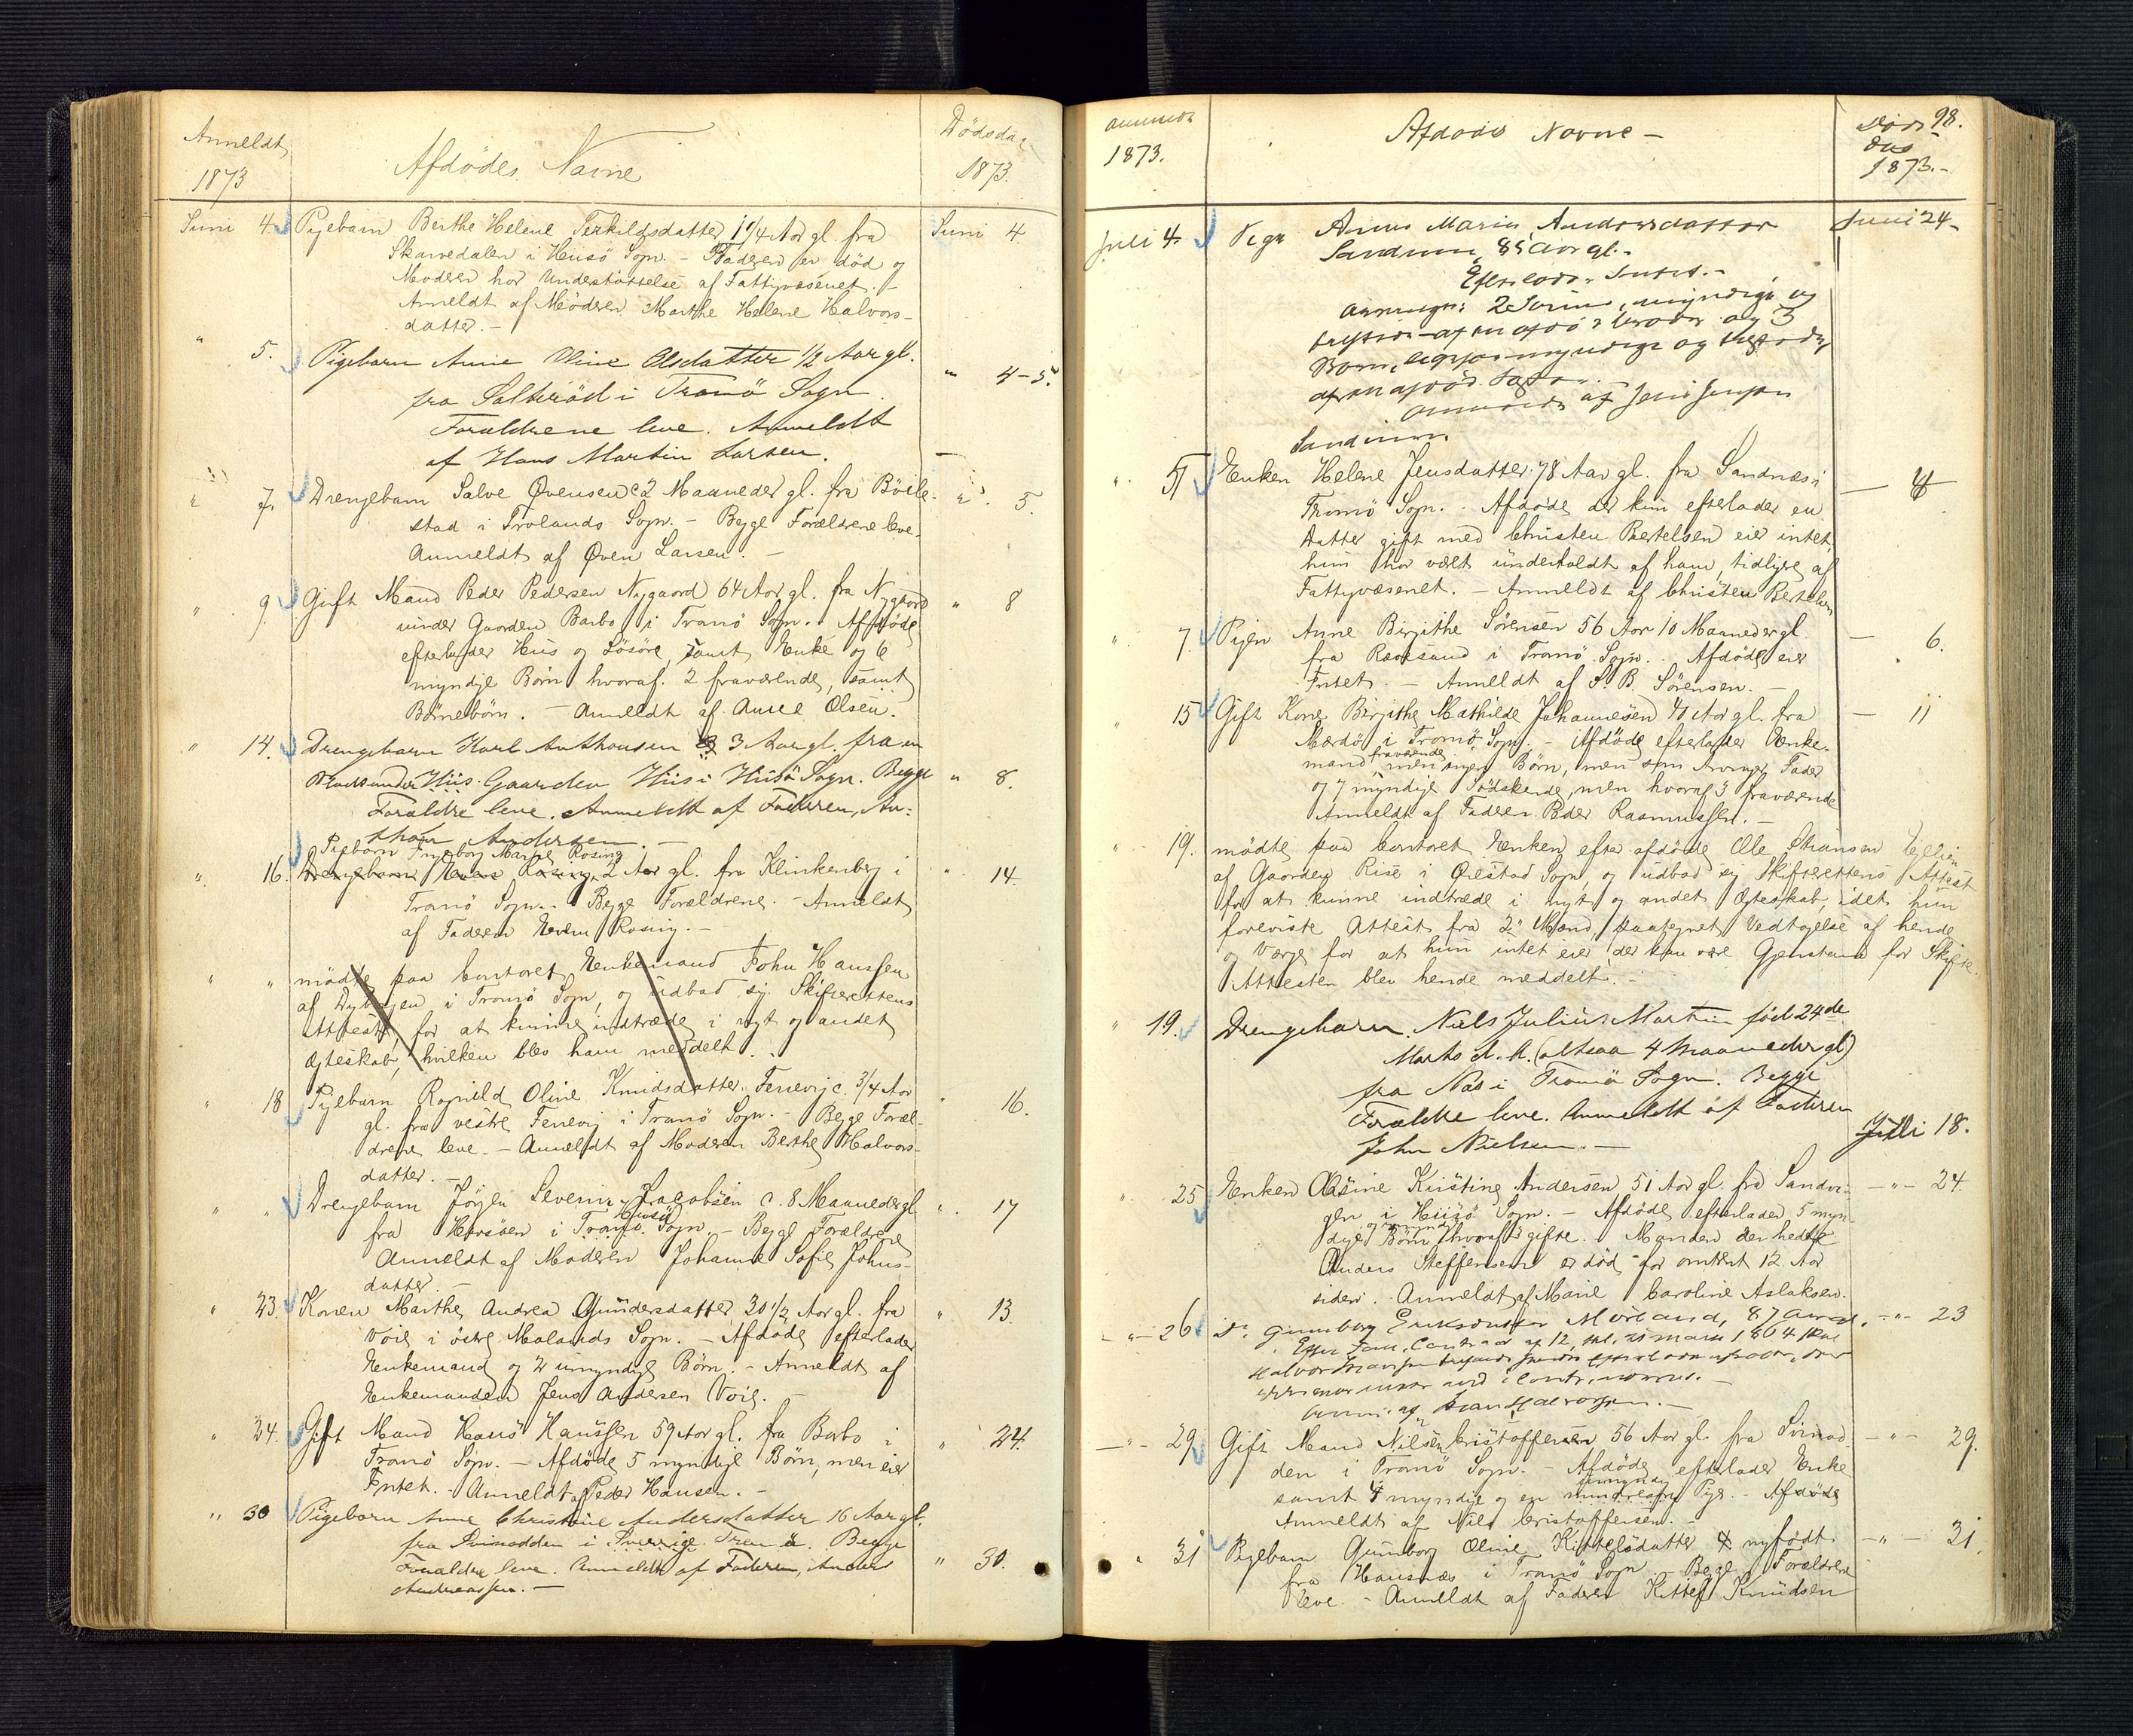 Anmeldt
1873
Afdødes Navne
Dødsdag
1873.
Juni 4. Pigebarn Berthe Helene Terkildsdatter 1 1/4 Aar gl. fra Juni 4
Skarvedalen i Hisö Sogn. - Faderen er död og
Moderen har Understøttelse af Fattigvæsenet. -
Anmeldt af Moderen Marthe Helene Halvors-
datter. -
" 5. Pigebarn Anne Oline Olsdatter 1/2 Aar gl. " 4-5.
fra Salteröd i Tromö Sogn.
Forældrene leve. Anmeldt
af Hans Martin Larsen.
" 7. Drengebarn Salve Øvensen c 2 Maaneder gl. fra Böile- " 5.
stad i Frolands Sogn. - Begge Forældrene leve.
Anmeldt af Øven Larsen. -
" 9. Gift Mand Peder Pedersen Nygaard 64 Aar gl. fra Nygaard " 8
under Gaarden Barbo i Tromö Sogn. - Afdøde
efterlader Hus og Lösöre, samt Enke og 6
myndige Börn hvoraf 2 fraværende, samt
Börnebörn. - Anmeldt af Anne Olsen.
" 14. Drengebarn Karl Anthonsen 3 Aar gl. fra en
Plads under Hiis Gaarden Hiis i Hisö Sogn. Begge " 8.
Forældre leve. Anmeldt af Faderen, An-
thon Andersen. -
Pigebarn Ingeborg Marie Rosing
" 16. Drengebarn Rosing 2 Aar gl. fra Klinkenberg i " 14.
Tromö Sogn. - Begge Forældrene. - Anmeldt
af Faderen Rosing. -
" " mødte paa Contoret Enkemand John Hanssen
af Dybvigen i Tromö Sogn, og udbad sig Skifterettens
Attest, for at kunne indtræde i nyt og andet
Ægteskab, hvilken blev ham meddelt. -
" 18 Pigebarn Ragnild Oline Knudsdatter Ferrevig c. 3/4 Aar " 16.
gl. fra vestre Ferrevig i Tromö Sogn. - Begge Foræl-
drene leve. - Anmeldt af Moderen Berthe Halvors-
datter. -
" " Drengebarn Jørgen Severin Jacobsen c. 8 Maaneder gl. " 17
Hisö
fra Havsöen i Tromö Sogn. - Begge Forældrene
Anmeldt af Moderen Johanne Sofie Johns-
datter. -
" 23. Konen Marthe Andrea Gundersdatter 30 1/2 Aar gl. fra " 13.
Voie i östre Molands Sogn. - Afdøde efterlader
Enkemand og 2 umyndige Børn. - Anmeldt af
Enkemanden Jens Andersen Voie. -
" 24. Gift Mand Hans Hanssen 59 Aar gl. fra Barbo i " 24.
Tromö Sogn. - Afdøde 5 myndige Børn, men eier
Intet. - Anmeldt af Peder Hansen. -
" 30 Pigebarn Anne Christine Andersdatter 16 Aar gl.
fra Svinodden i Tromö. Begge
Forældre leve. Anmeldt af Faderen, Anders " 30.
Andreassen. -
Anmeldt
1873.
Afdødes Navne -
Døds-
dag
1873. -
98.
Juli 4. Pige Anne Marie Andersdatter Juni 24 -
Sandum, 85 Aar gl. -
Efterlader Intet. -
Arvinger: 2 myndige og
af en afdød Broder og 3
Børn, myndige og
af en afdød
Anmeldt af Jens Jensen
Sandum.
" 5 Enken Helene Jensdatter 78 Aar gl. fra Sandnæs i — 4
Tromö Sogn. - Afdøde der kun efterlader en
Datter gift med Christen Bertelsen eier intet,
hun har vært underholdt af ham, tidligere af
Fattigvæsenet. - Anmeldt af Christen Bertelsen
" 7. Pigen Anne Birgithe Sørensen 56 Aar 10 Maaneder gl. — 6.
fra Revesand i Tromö Sogn. - Afdøde eier
Intet. - Anmeldt af S. B. Sörensen. -
" 15 Gift Kone Birgithe Mathilde Johannesen 41 Aar gl. fra — 11
Merdö i Tromö Sogn. - Afdøde efterlader Enke-
fraværende
mand men ingen Børn, men som Arvinger Fader
og 7 myndige Sødskende, men hvoraf 3 fraværende
Anmeldt af Faderen Peder Rasmussen. -
" 19. mødte paa Contoret Enken efter afdøde Ole
af Gaarden Rise i Øiestad Sogn, og udbad sig Skifterettens Attest
for at kunne indtræde i nyt og andet Ægteskab, idet hun
foreviste Attest fra 2 Mænd, paategnet Vedtagelse af hende
og Værge for at hun intet eier der kan være Gjenstand for Skifte.
Attesten blev hende meddelt. -
" 19. Drengebarn Niels Julius Martin född 24de
Marts d. A. (altsaa 4 Maaneder gl)
fra Næs i Tromö Sogn. Begge
Forældre leve. Anmeldt af Faderen
John Nielsen. — Juli 18.
" 25 Enken Kristine Andersen 51 Aar gl. fra Sandvi- -"- 24
gen i Hisö Sogn. - Afdøde efterlader 5 myn-
dige Børn hvoraf gifte. Manden der hedte
Anders Steffensen er död for omtrent 12 Aar
siden. Anmeldt af Marie Caroline Aslaksen.
-"- 26 Do Gunborg Eriksdatter Mörland, 87 Aar gl. -"- 23
-"- 29 Gift Mand Nils Cristoffersen 56 Aar gl. fra Svinod- -"- 29.
den i Tromö Sogn. - Afdøde efterlader Enke
umyndig
samt 4 myndige og en Pige. - Afdøde
Anmeldt af Nils Cristoffersen. -
" 31 Pigebarn Gunborg Oline Kittelsdatter nyfödt -"- 31.
fra Hausnæs i Tromö Sogn - Begge Forældrene
leve. - Anmeldt af Faderen Kittel Knudsen